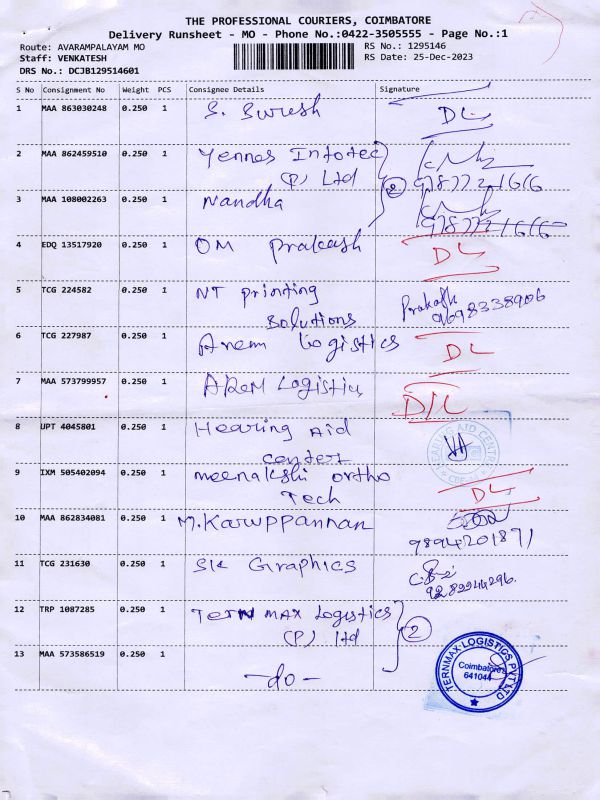 THE PROFESSIONAL COURIERS, COIMBATORE
Delivery Runsheet - MO - Phone No.:0422-3505555 - Page No.:1
Route: AVARAMPALAYAM MO RS No.: 1295146
Staff: VENKATESH RS Date: 25-Dec-2023
DRS No.: DCJB129514601
S No Consignment No Weight PCS Consignee Details Signature
1 MAA 863030248 0.250 1 S. Suresh DL
2 MAA 862459510 0.250 1 Yennes Infotec
(P) Ltd 2
3 MAA 108002263 0.250 1 Nandha
4 EDQ 13517920 0.250 1 OM Prakash DL
5 TCG 224582 0.250 1 NT Printing Prakash
Solutions 9698338906
6 TCG 227987 0.250 1 Arem Logistics DL
7 MAA 573799957 0.250 1 ARem Logistics D/L
8 UPT 4045801 0.250 1 Hearing Aid
center
9 IXM 505402094 0.250 1 meenakshi ortho
Tech DL
10 MAA 862834081 0.250 1 M.Karuppannan
9894201871
11 TCG 231630 0.250 1 SK Graphics
12 TRP 1087285 0.250 1 TERN MAX Logistics
(P) ltd 2
13 MAA 573586519 0.250 1 -do-
TERNMAX LOGISTICS PVT LTD
Coimbatore
641044